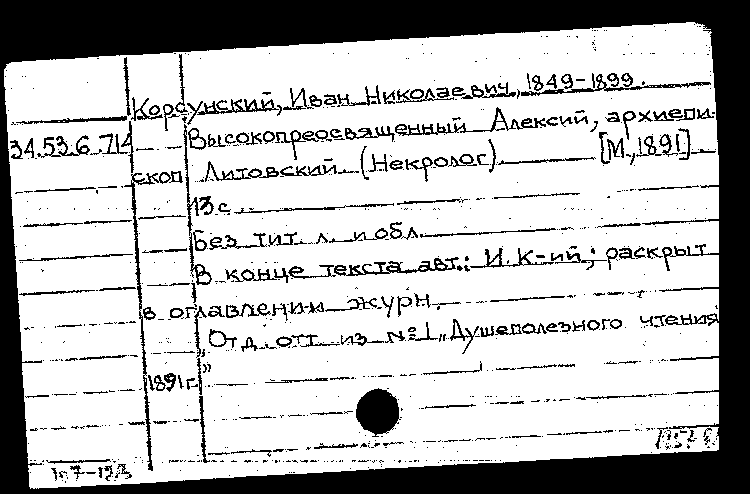 Корсунский, Иван Николаевич, 1849-1899.
34.53.6.714 Высокопреосвященный Алексий, архиепи-
скоп Литовский. (Некролог). [М., 1891].
13 с.
Без тит. л. и обл.
В конце текста авт.: И. К-ий; раскрыт
в оглавлении журн.
Отд. отт. из №1 „Душеполезного чтения
" 1891 г.